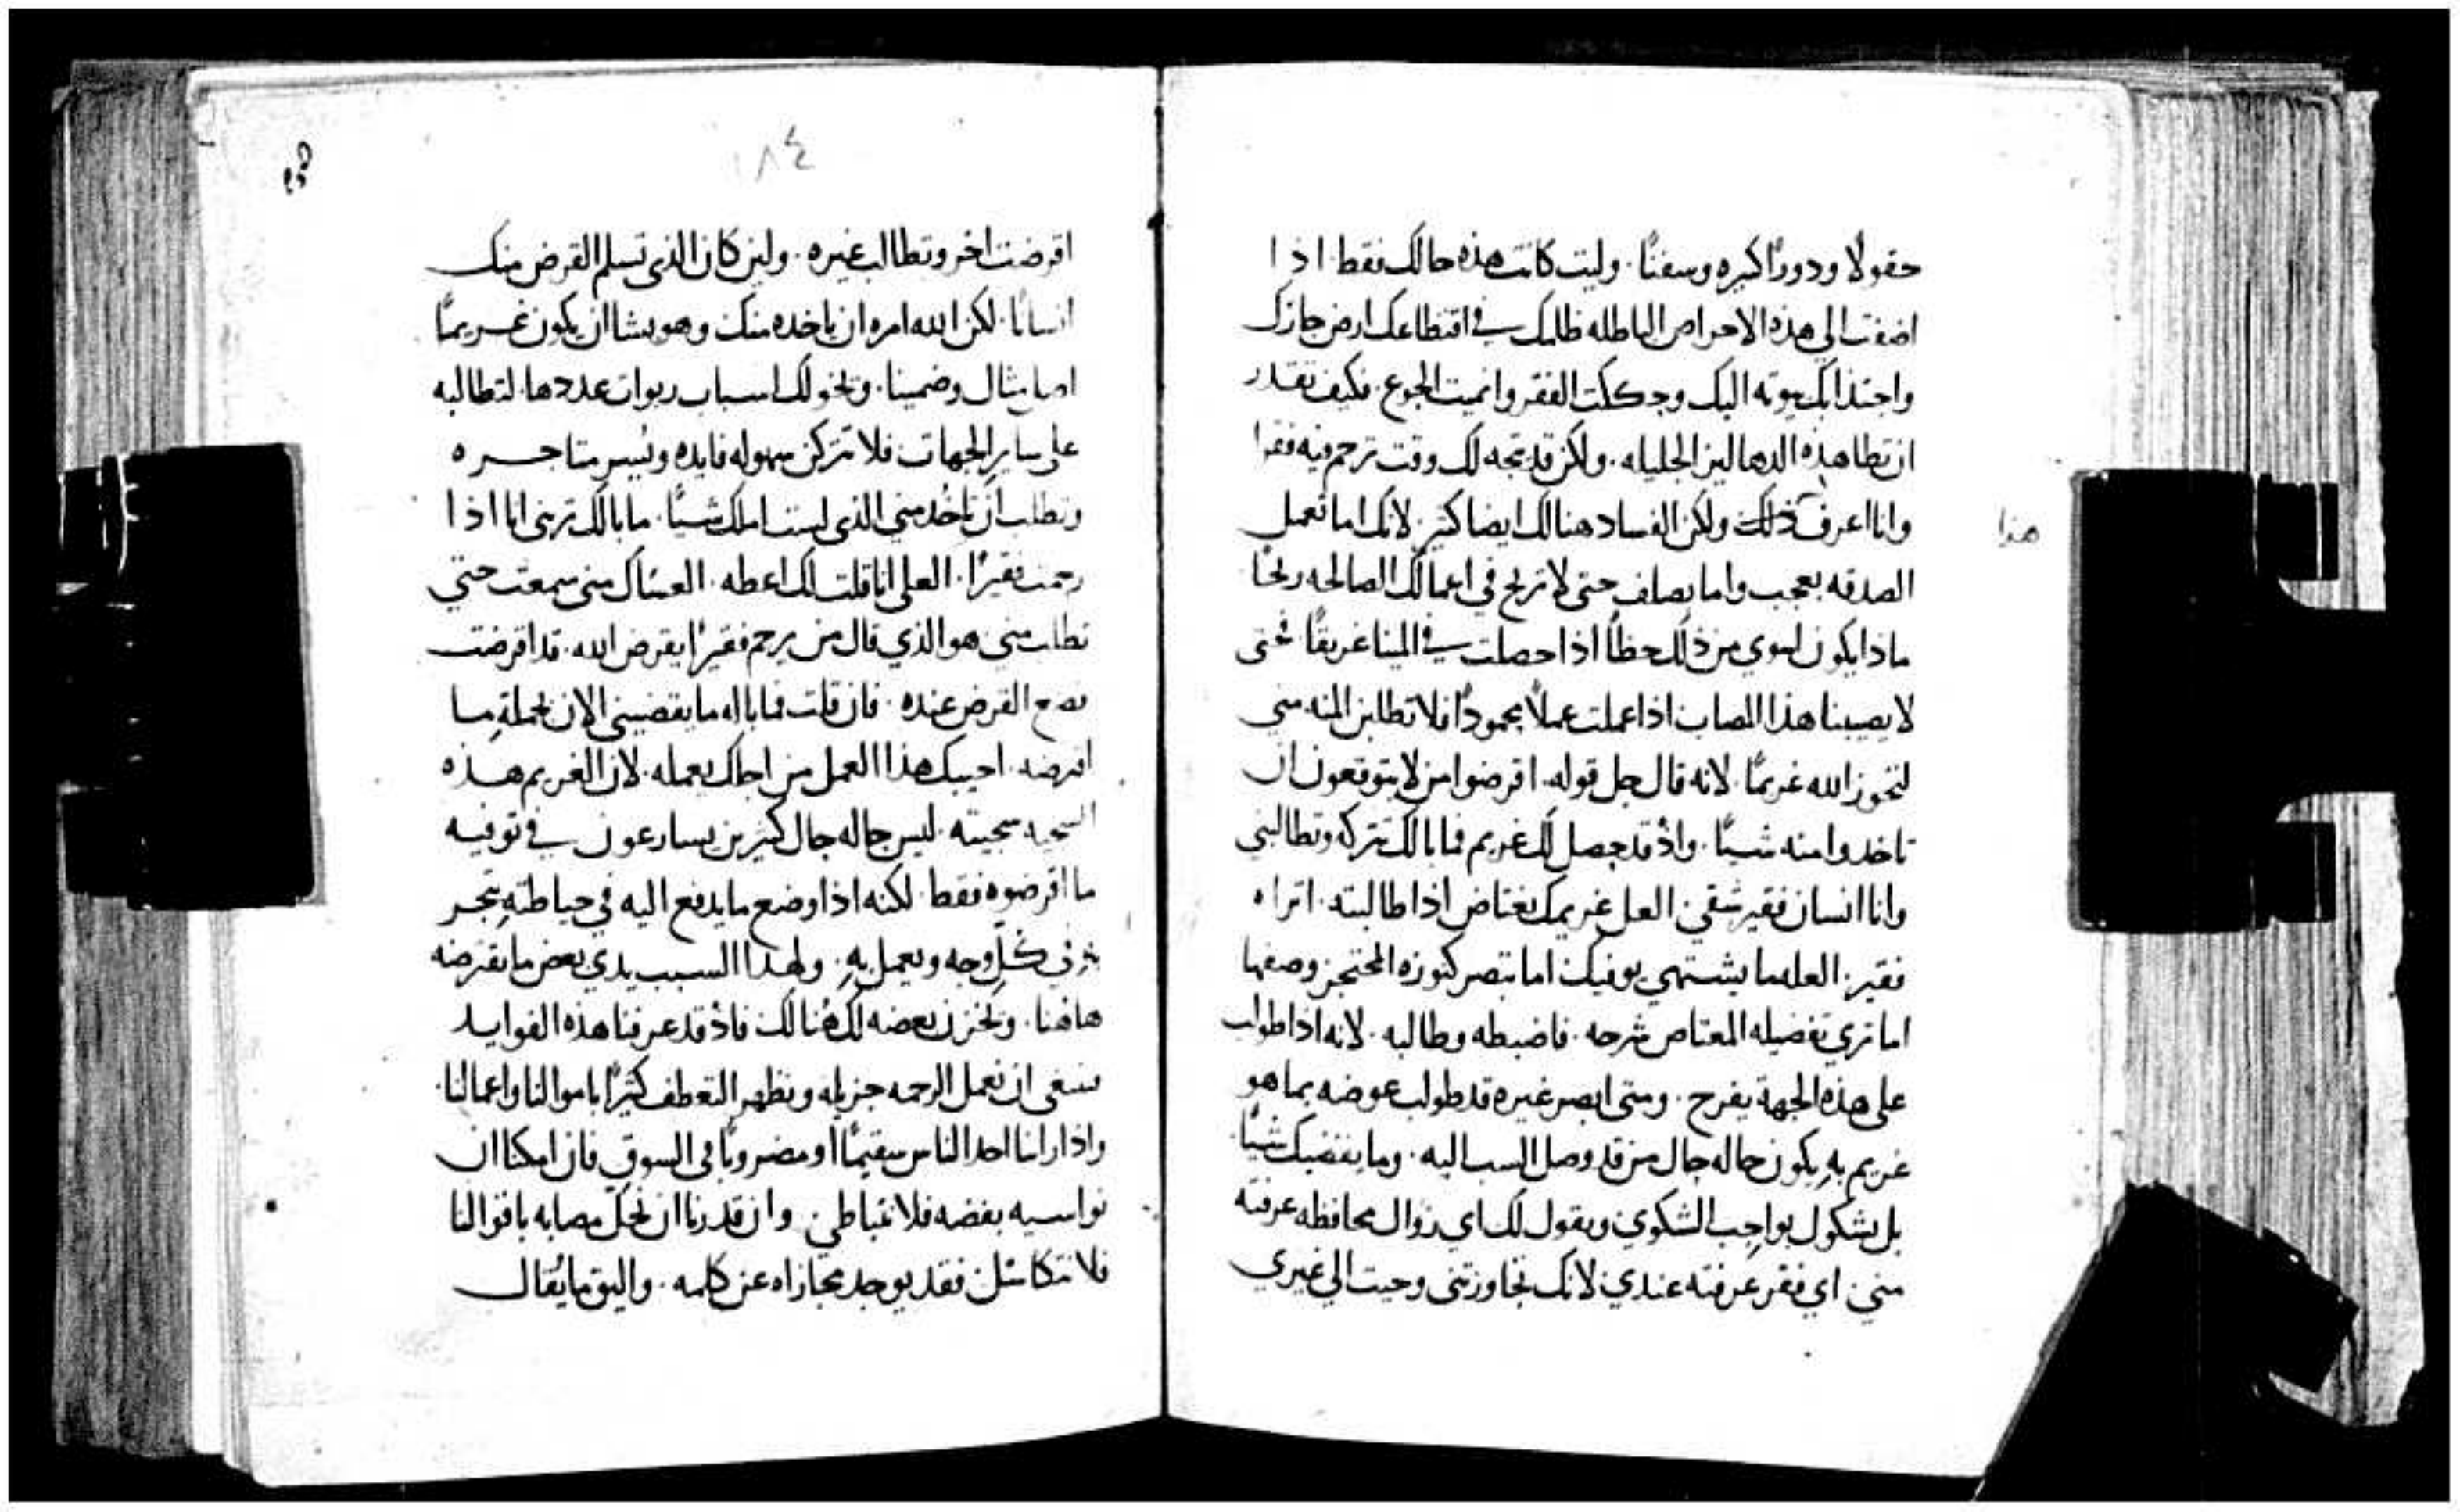 حقولًا ودورًا كبيره وسفنًا. وليت كانت هذه حالك فقط. اذا
اضفت الي هذه الاحراص الباطله ظلمك في اقتطاعك ارض جارك
واجتذابك بيوته اليك وجعلت الفقر وانميت الجوع. فكيف تقدر
ان تطا هذه الدهاليز الجليله. ولكن قد يتجه لك وقت ترحم فيه فقرا
وانا اعرف ذلك ولكن الفساد هنالك ايضا كثير. لانك اما تعمل
هذا
الصدقه بعجب واما بصلف حتى لا تربح في اعمالك الصالحه ربحًا
ماذا يكون اسوي من ذلك حظاً اذا حصلت في المينا غريقًا. فحتى
لا يصيبنا هذا المصاب اذا عملت عملًا محمودًا فلا تطلبن المنه مني
لتحوز الله غريمًا. لانه قال جل قوله. اقرضوا من لا تتوقعون ان
تاخدوا منه شيئًا. واذ قد حصل لك غريم فما بالك تتركه وتطالبني
وانا انسان فقير شقي. العل غريمك يغتاض اذا طالبته. اتراه
فقير. العله ما يشتهي يوفيك اما تبصر كنوزه المحتجز وصفها
اما تري تفضيله المعتاص شرحه. فاضبطه وطالبه. لانه اذا طولب
على هذه الجهة يفرح. ومتى ابصر غيره قد طولب عوضه بما هو
غريم به يكون حاله حال من قد وصل السب اليه. وما يقضيك شيئًا
بل يشكول بواجب الشكوي ويقول لك اي زوال محافظه عرفته
مني. اي فقر عرفته عندي. لانك تجاوزتني وجيت الي غيري
١٨٤
اقرضت اخر وتطالب غيره. ولين كان الذي تسلم القرض منك
انسانًا. لكن الله امره ان ياخده منك وهو يشا ان يكون غريمًا
وضمينا. وتخولك اسباب ربوات عددها. لتطالبه
على ساير الجهات فلا تتركن سهوله فايده ويسر متاجره
وتطلب ان تاخد مني الذي لست املك شيئًا. ما بالك تريني انا اذا
رحمت فقيرًا. العلي انا قلت لك اعطه. العساك مني سمعت حتي
تطلب مني هو الذي قال من يرحم فقيرًا يقرض الله. قد اقرضت
فضع القرض عنده. فان قلت فما باله ما يقضيني الان بجملة ما
اقرضه. اجيبك هذا العمل من اجلك يعمله. لان الغريم هذه
السجيه سجيته. ليس حاله حال كثيرين يسارعون في توفيه
ما اقرضوه فقط. لكنه اذا وضع ما يدفع اليه في حياطته يتجر
في كل وجه ويعمل به. ولهذا السبب يدي بعض ما تقرضه
هاهنا. وتخزن بعضه لك هنالك فاذ قد عرفنا هذه الفوايد
سنغي ان نعمل الرحمه جزيله ونظهر التعطف كثيرًا باموالنا واعمالنا.
واذا راينا احد الناس سقيمًا او مضروبًا في السوق فان امكنا ان
نواسيه بفضه فلا نتباطي. وان قدرنا ان نحل مصابه باقوالنا
فلا نتكاسل فقد يوجد مجازاه عن كلمه. واليق ما يقال